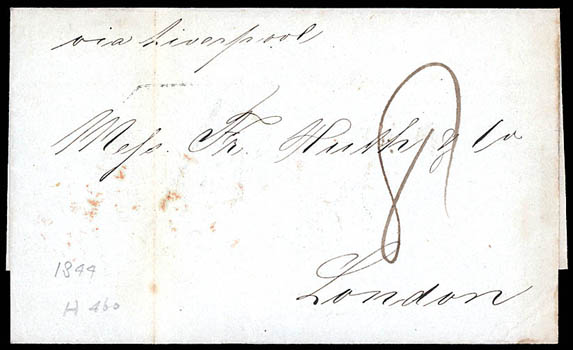 via Liverpool
Mess. Fr. Huth & Co
8
London
1844
H 460